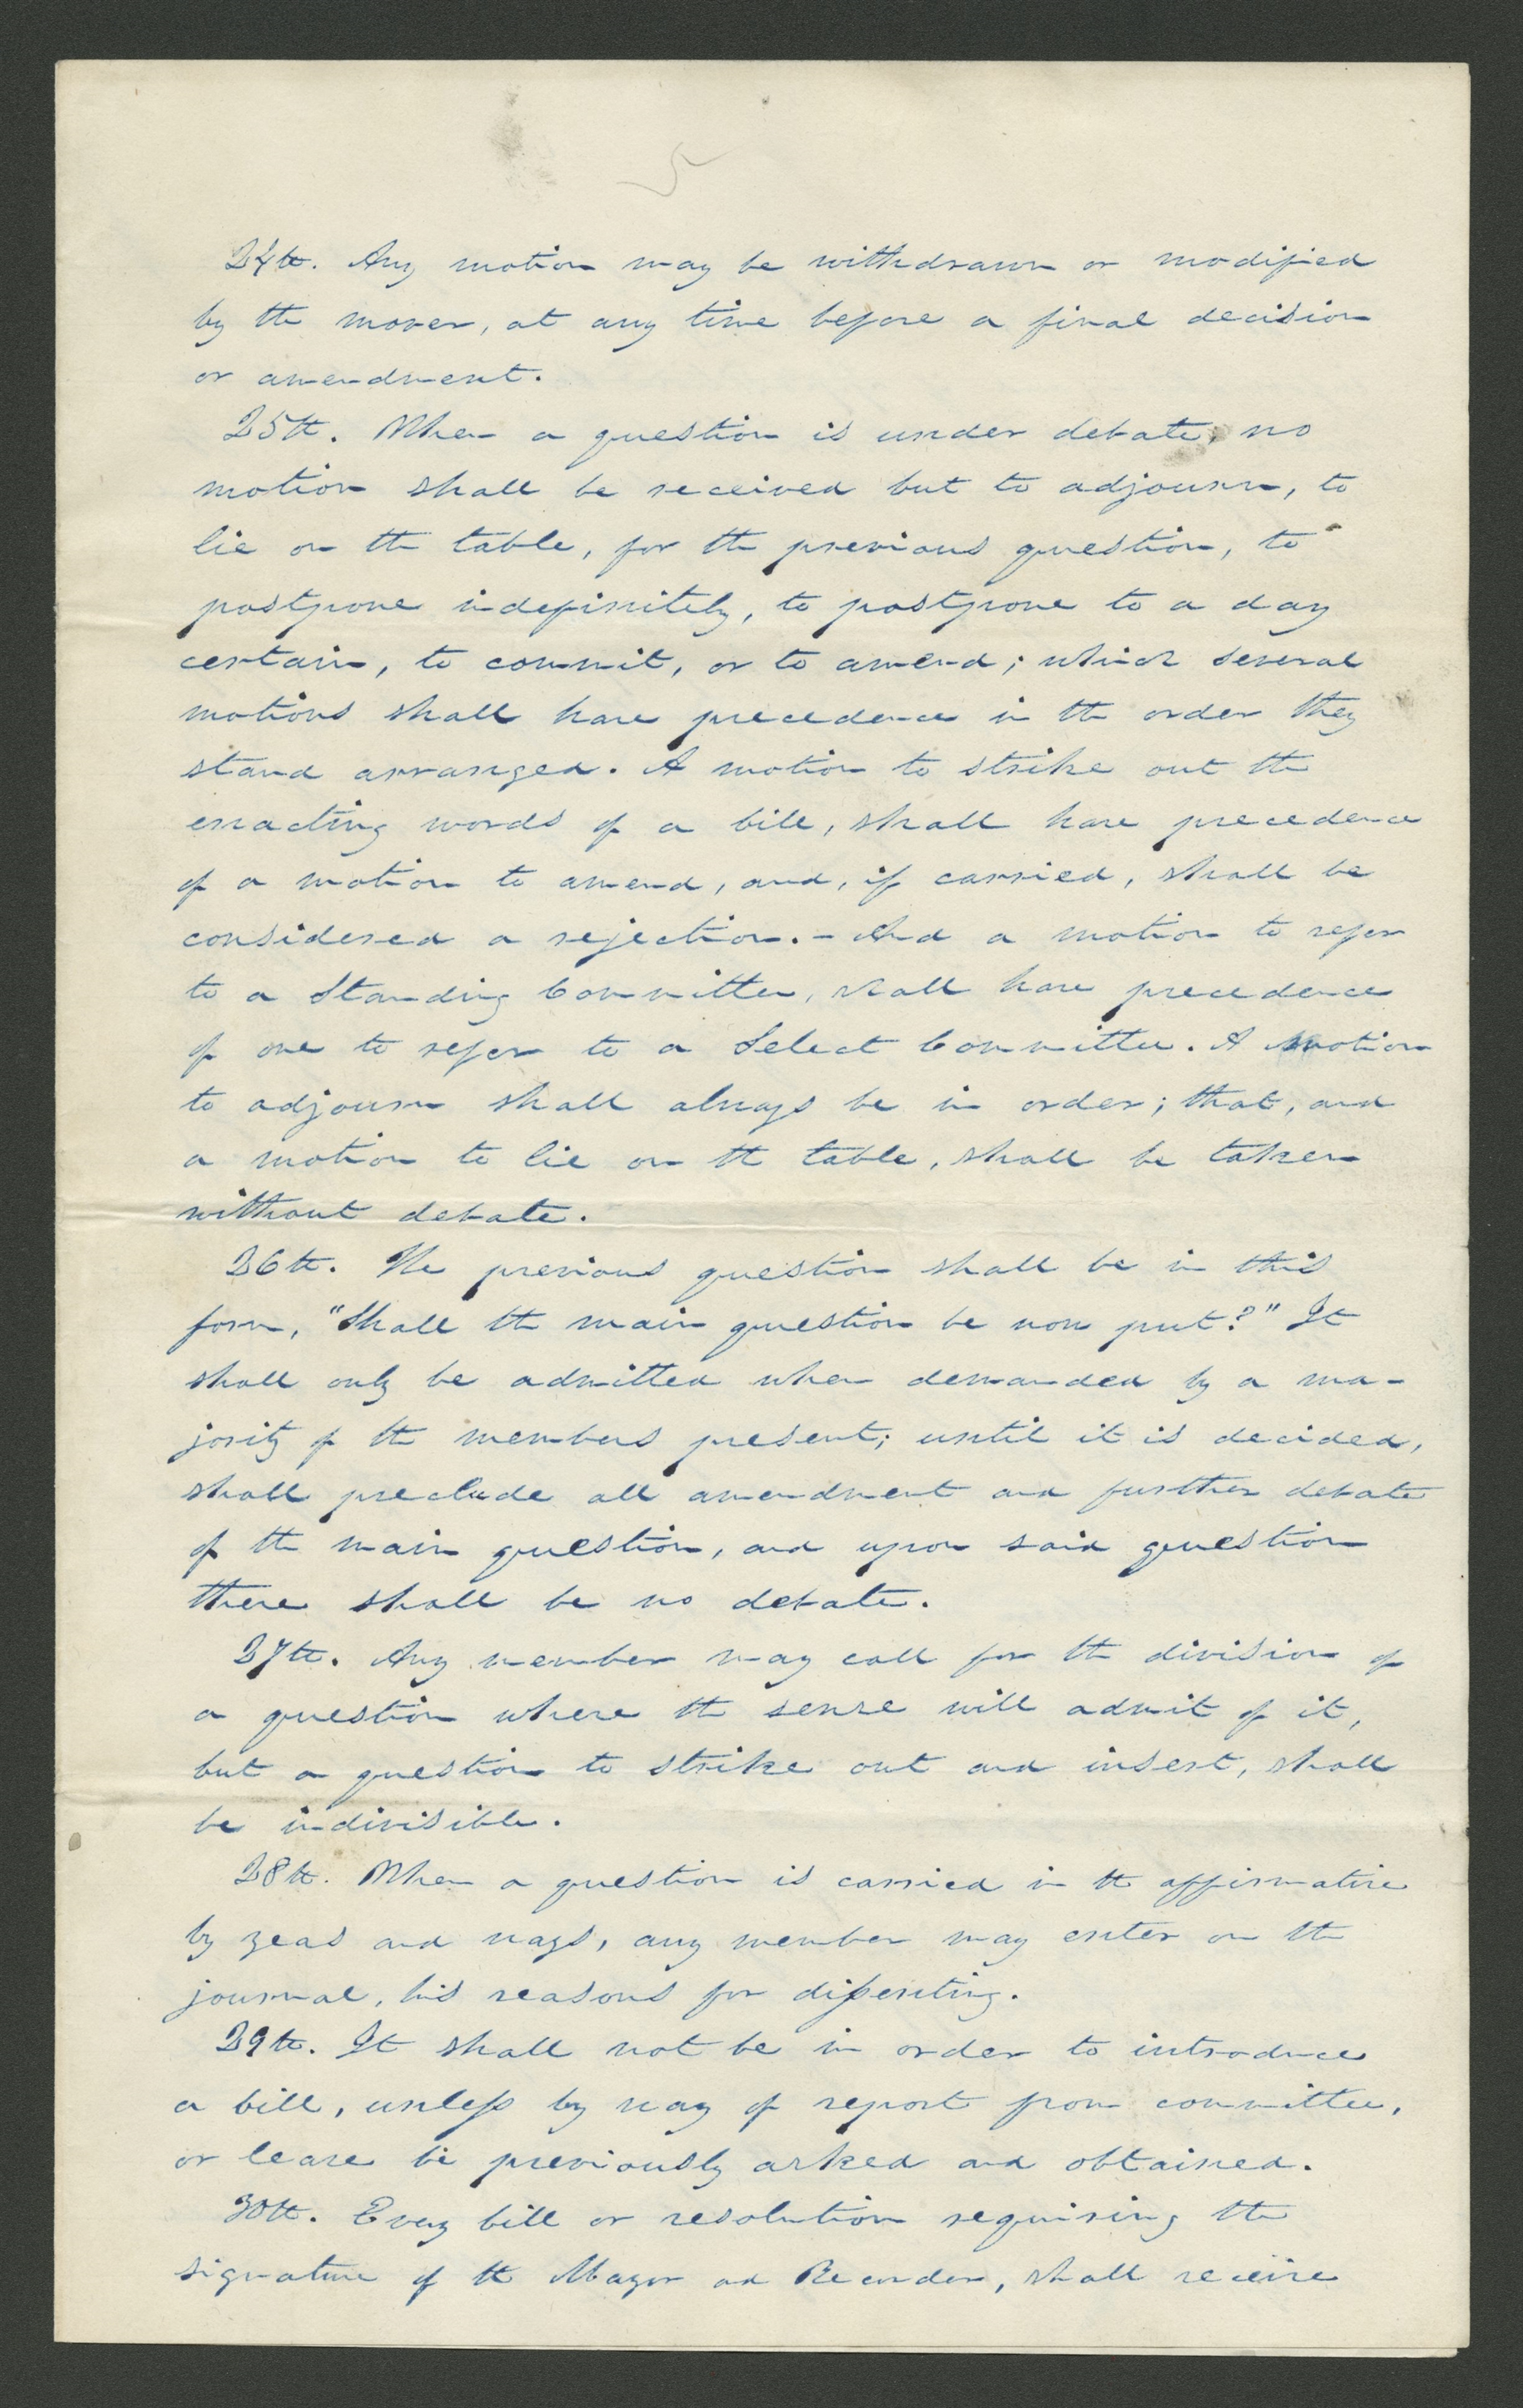 5
24th. Any motion may be withdrawn or modified
by the mover, at any time before a final decision
or amendment.
25th. When a question is under debate, no
motion shall be received but to adjourn, to
lie on the table, for the previous question, to
postpone indefinitely, to postpone to a day
certain, to commit, or to amend; which several
motions shall have precedence in the order they
stand arranged. A motion to strike out the
enacting words of a bill, shall have precedence
of a motion to amend, and, if carried, shall be
considered a rejection. - And a motion to refer
to a Standing Committee, shall have precedence
of one to refer to a Select Committee. A motion
to adjourn shall always be in order; that, and
a motion to lie on the table, shall be taken
without debate.
26th. The previous question shall be in this
form, "Shall the main question be now put?" It
shall only be admitted when demanded by a ma-
jority of the members present; until it is decided,
shall preclude all amendment and further debate
of the main question, and upon said question
there shall be no debate.
27th. Any member may call for the division of
a question where the sense will admit of it,
but a question to strike out and insert, shall
be indivisible.
28th. When a question is carried in the affirmative
by yeas and nays, any member may enter on the
journal, his reasons for dissenting.
29th. It shall not be in order to introduce
a bill, unless by way of report from committee,
or leave be previously asked and obtained.
30th. Every bill or resolution requiring the
signature of the Mayor and Recorder, shall receive